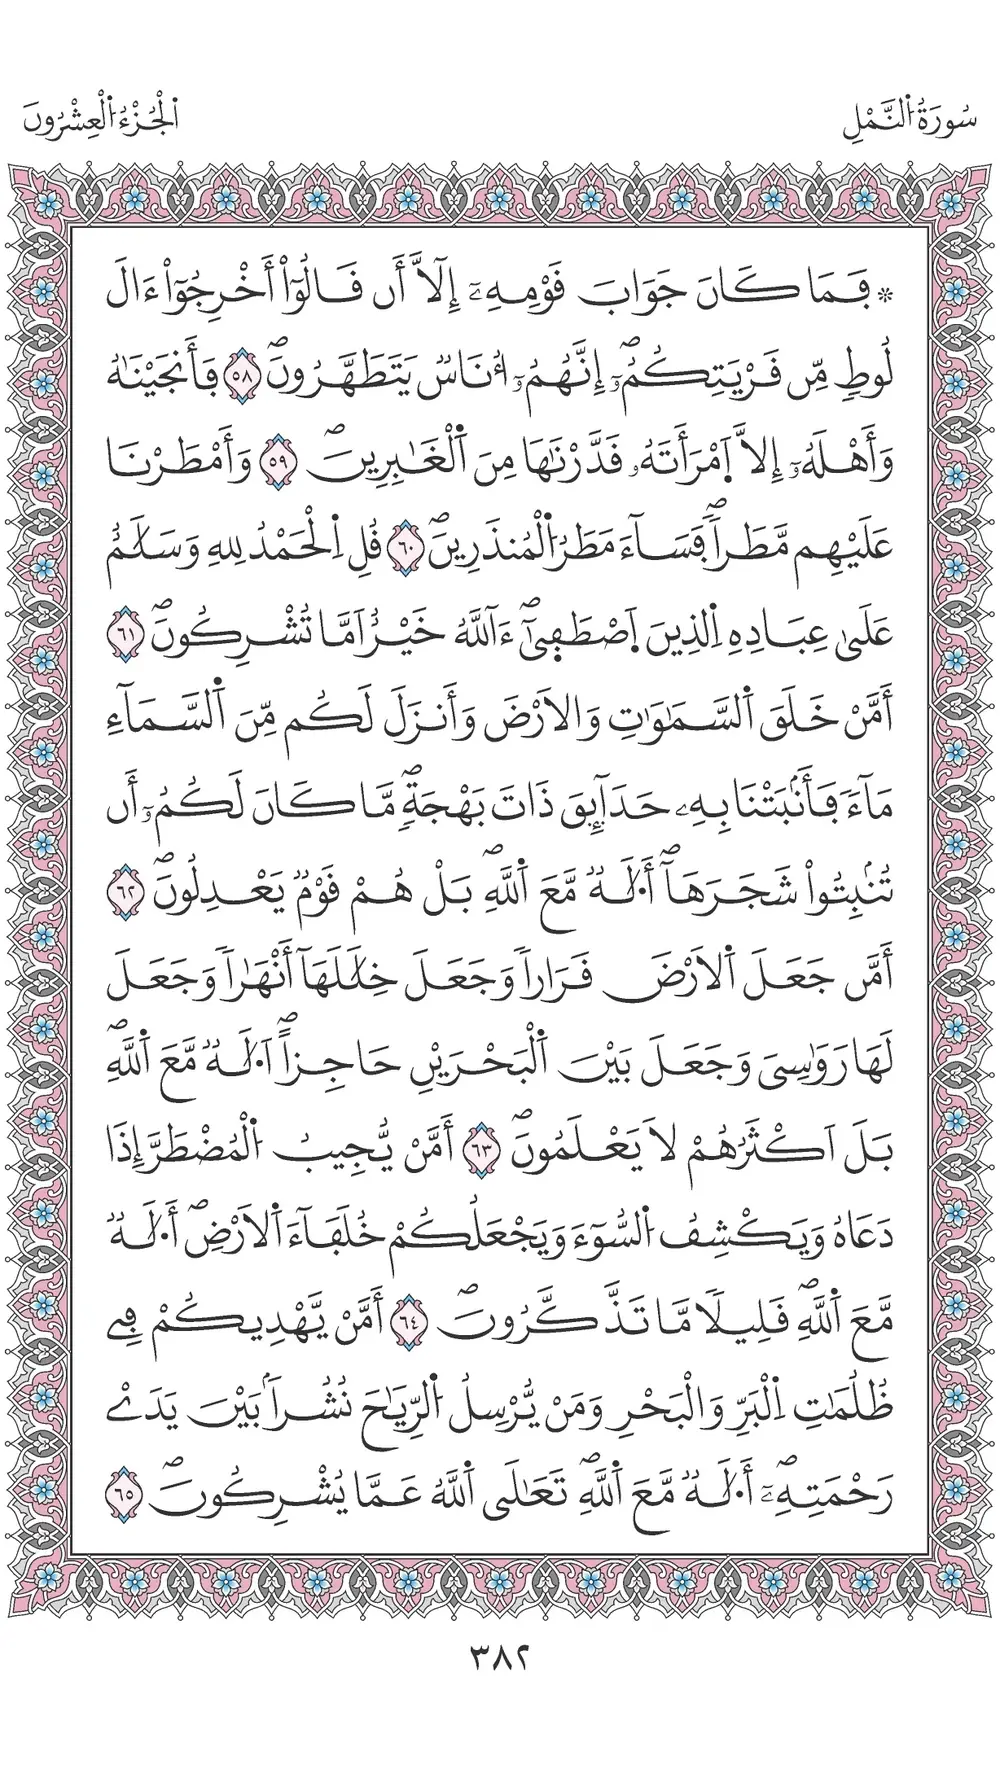 سُورَةُ اُ۬لنَّمْلِ
اَ۬لْجُزْءُ اُ۬لْعِشْرُونَ
۞ فَمَا كَانَ جَوَابَ قَوْمِهِۦٓ إِلَّآ أَن قَالُوٓاْ أَخْرِجُوٓاْ ءَالَ
لُوطٖ مِّن قَرْيَتِكُمُۥٓۖ إِنَّهُمُۥٓ أُنَاسٞ يَتَطَهَّرُونَۖ ٥٨ فَأَنجَيْنَٰهُ
وَأَهْلَهُۥٓ إِلَّا اَ۪مْرَأَتَهُۥ قَدَّرْنَٰهَا مِنَ اَ۬لْغَٰبِرِينَۖ ٥٩ وَأَمْطَرْنَا
عَلَيْهِم مَّطَراٗۖ فَسَآءَ مَطَرُ اُ۬لْمُنذَرِينَۖ ٦٠ قُلِ اِ۬لْحَمْدُ لِلهِ وَسَلَٰمٌ
عَلَىٰ عِبَادِهِ اِ۬لذِينَ اَ۪صْطَف۪ىٰٓۖ ءَآللَّهُ خَيْرٌ اَمَّا تُشْرِكُونَۖ ٦١
أَمَّنْ خَلَقَ اَ۬لسَّمَٰوَٰتِ وَالَارْضَ وَأَنزَلَ لَكُم مِّنَ اَ۬لسَّمَآءِ
مَآءٗ فَأَنۢبَتْنَا بِهِۦ حَدَآئِقَ ذَاتَ بَهْجَةٖۖ مَّا كَانَ لَكُمُۥٓ أَن
تُنۢبِتُواْ شَجَرَهَآۖ أَ۟لَٰهٞ مَّعَ اَ۬للَّهِۖ بَلْ هُمْ قَوْمٞ يَعْدِلُونَۖ ٦٢
أَمَّن جَعَلَ اَ۬لَارْضَ قَرَاراٗ وَجَعَلَ خِلَٰلَهَآ أَنْهَٰراٗ وَجَعَلَ
لَهَا رَوَٰسِىَ وَجَعَلَ بَيْنَ اَ۬لْبَحْرَيْنِ حَاجِزاًۖ اَ۟لَٰهٞ مَّعَ اَ۬للَّهِۖ
بَلَ اَكْثَرُهُمْ لَا يَعْلَمُونَۖ ٦٣ أَمَّنْ يُّجِيبُ اُ۬لْمُضْطَرَّ إِذَا
دَعَاهُ وَيَكْشِفُ اُ۬لسُّوٓءَ وَيَجْعَلُكُمْ خُلَفَآءَ اَ۬لَارْضِۖ أَ۟لَٰهٞ
مَّعَ اَ۬للَّهِۖ قَلِيلٗا مَّا تَذَّكَّرُونَۖ ٦٤ أَمَّنْ يَّهْدِيكُمْ فِے
ظُلُمَٰتِ اِ۬لْبَرِّ وَالْبَحْرِ وَمَنْ يُّرْسِلُ اُ۬لرِّيَٰحَ نُشُراَۢ بَيْنَ يَدَےْ
رَحْمَتِهِۦٓۖ أَ۟لَٰهٞ مَّعَ اَ۬للَّهِۖ تَعَٰلَى اَ۬للَّهُ عَمَّا يُشْرِكُونَۖ ٦٥
٣٨٢